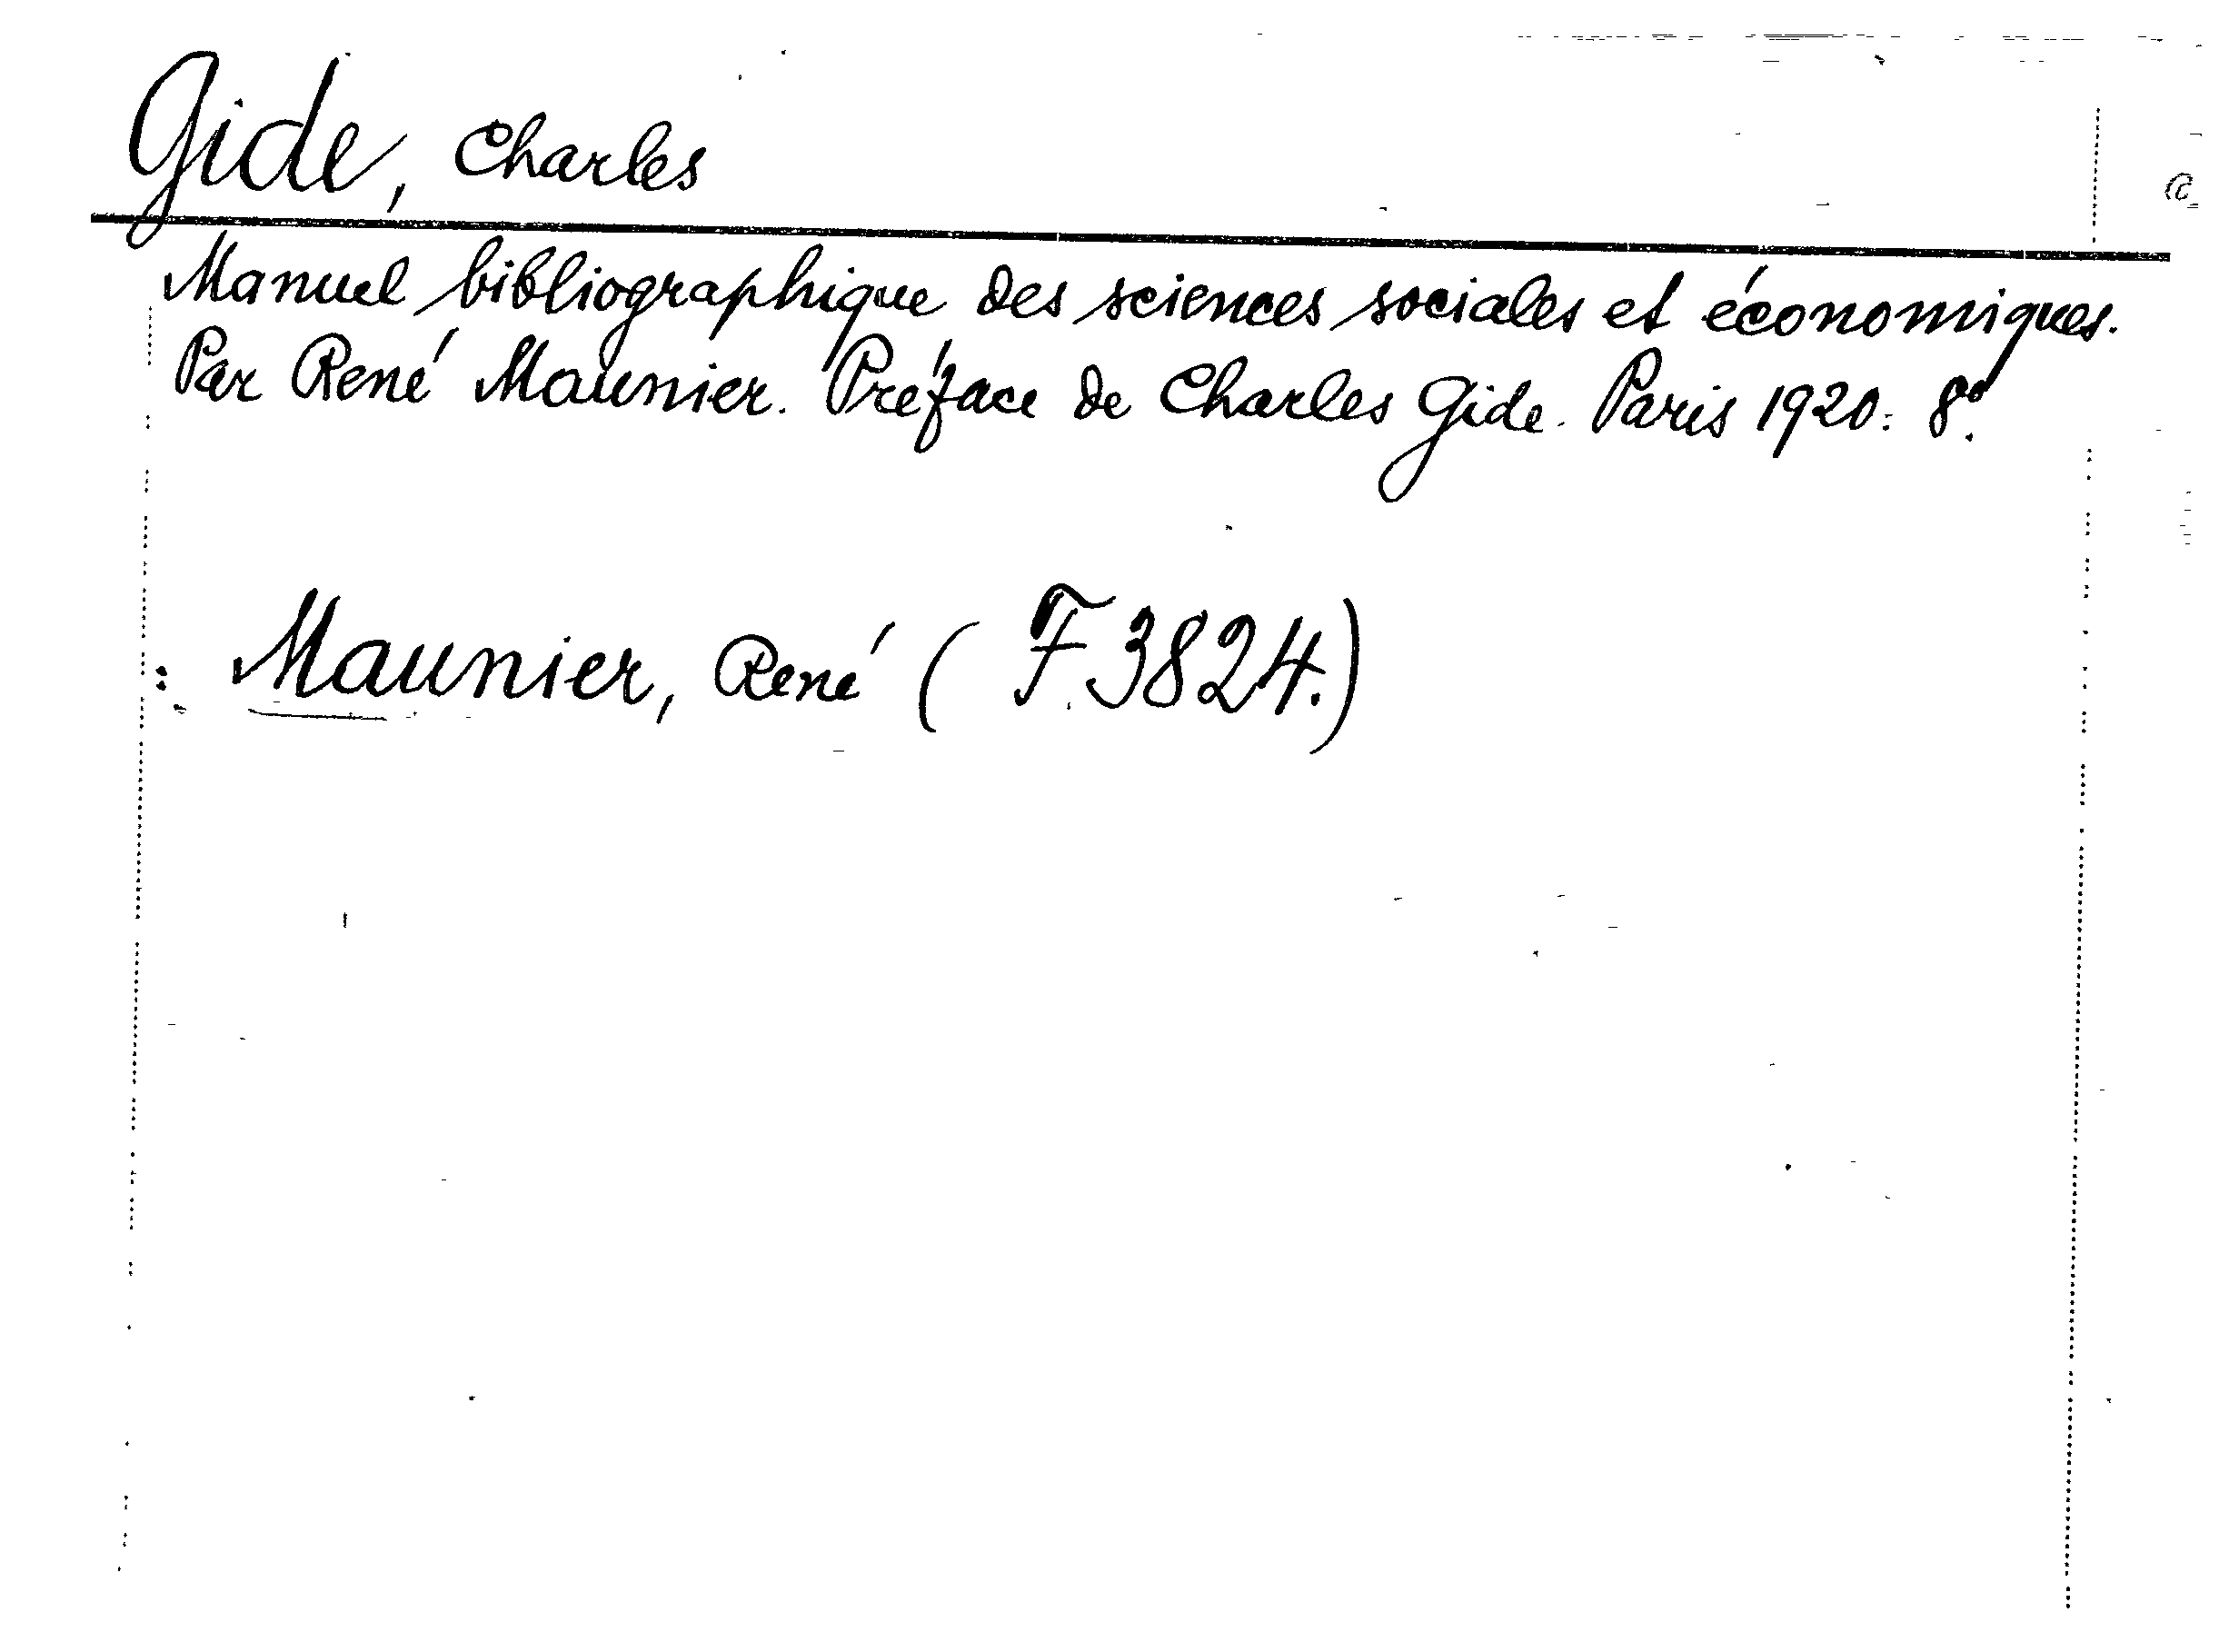 Gide, Charles
Manuel bibliographique des sciences sociales et économiques.
Par René Maunier. Préface de Charles Gide. Paris 1920. 8°.
: Maunier, René (F. 3824.)